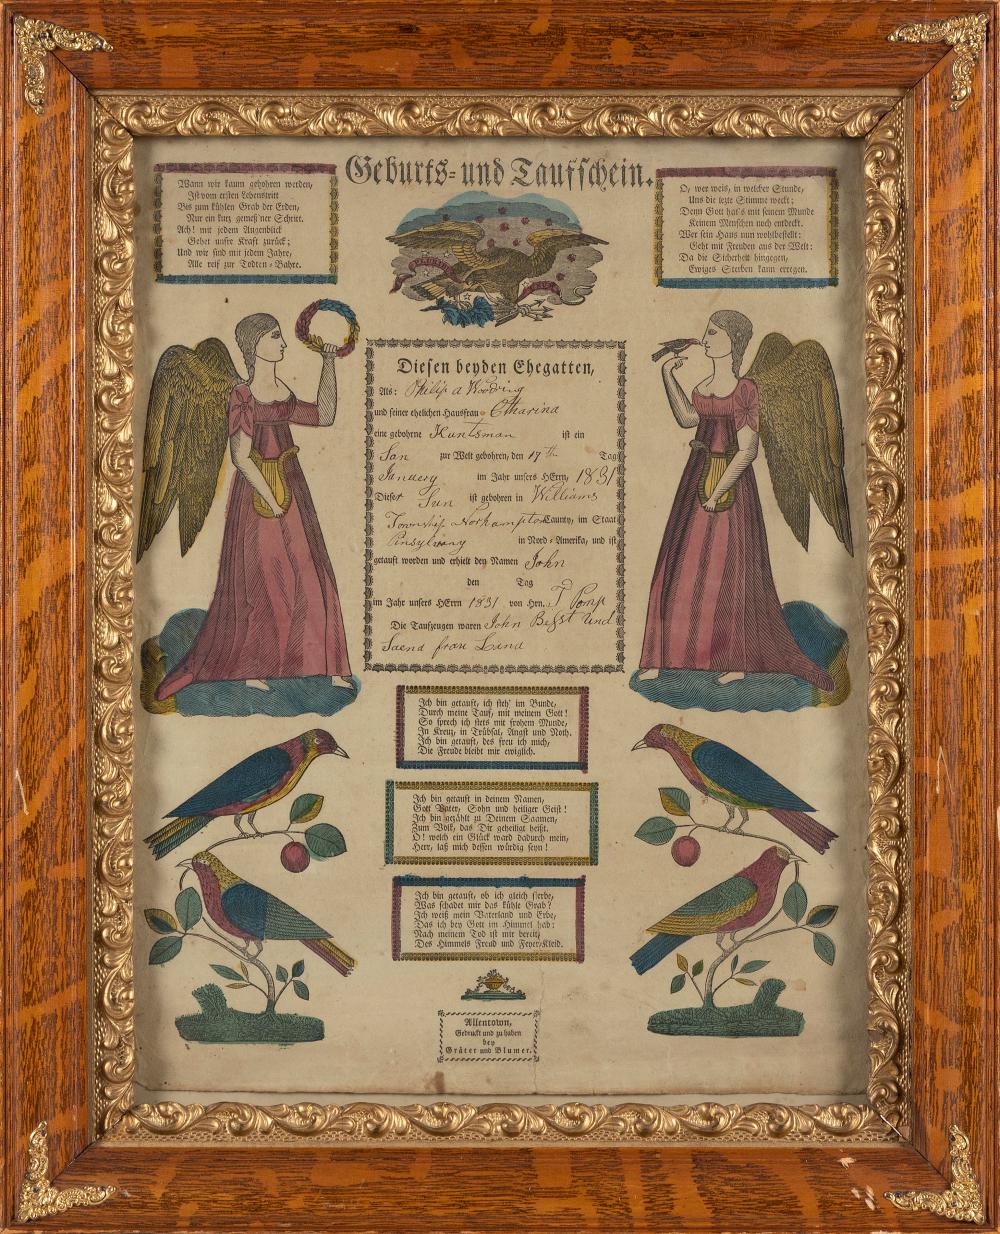 Geburts- und Taufschein.
Wann wir kaum gebohren werden,
Ist vom ersten Lebenstritt
Bis zum kühlen Grab der Erden,
Nur ein kurz gemess'ner Schritt.
Ach! mit jedem Augenblick
Gehet unsre Kraft zurück;
Und wir sind mit jedem Jahre,
Alle reif zur Todten-Bahre.
O, wer weis, in welcher Stunde,
Uns die lezte Stimme weckt;
Denn Gott hat's mit seinem Munde
Keinem Menschen noch entdeckt.
Wer sein Haus nun wohlbestellt:
Geht mit Freuden aus der Welt:
Da die Sicherheit hingegen,
Ewiges Sterben kann erregen.
Diesen beyden Ehegatten,
Als: Philip d Woodring
und seiner ehelichen Hausfrau Catharina
eine gebohrne Kuntsman ist ein
San zur Welt gebohren, den 17th Tag
January im Jahr unsers HErrn, 1831
Dieser Sun ist gebohren in Williams
Township Northampton Caunty, im Staat
Pinsylvany in Nord-Amerika, und ist
getauft worden und erhielt den Namen John
den Tag
im Jahr unsers HErrn 1831 von Hrn. T Pomp
Die Taufzeugen waren John Best und
Saend frau
Ich bin getauft, ich steh' im Bunde,
Durch meine Tauf, mit meinem Gott!
So sprech ich stets mit frohem Munde,
In Kreuz, in Trübsal, Angst und Noth.
Ich bin getauft, des freu ich mich,
Die Freude bleibt mir ewiglich.
Ich bin getauft in deinem Namen,
Gott Vater, Sohn und heiliger Geist!
Ich bin gezählt zu Deinem Saamen,
Zum Volk, das Dir geheiligt heißt.
O! welch ein Glück ward dadurch mein,
Herr, laß mich dessen würdig seyn!
Ich bin getauft, ob ich gleich sterbe,
Was schadet mir das kühle Grab?
Ich weiß mein Vaterland und Erbe,
Das ich bey Gott im Himmel hab:
Nach meinem Tod ist mir bereit,
Des Himmels Freud und Feyer-Kleid.
Allentown,
Gedruckt und zu haben
bey
Gräter und Blumer.